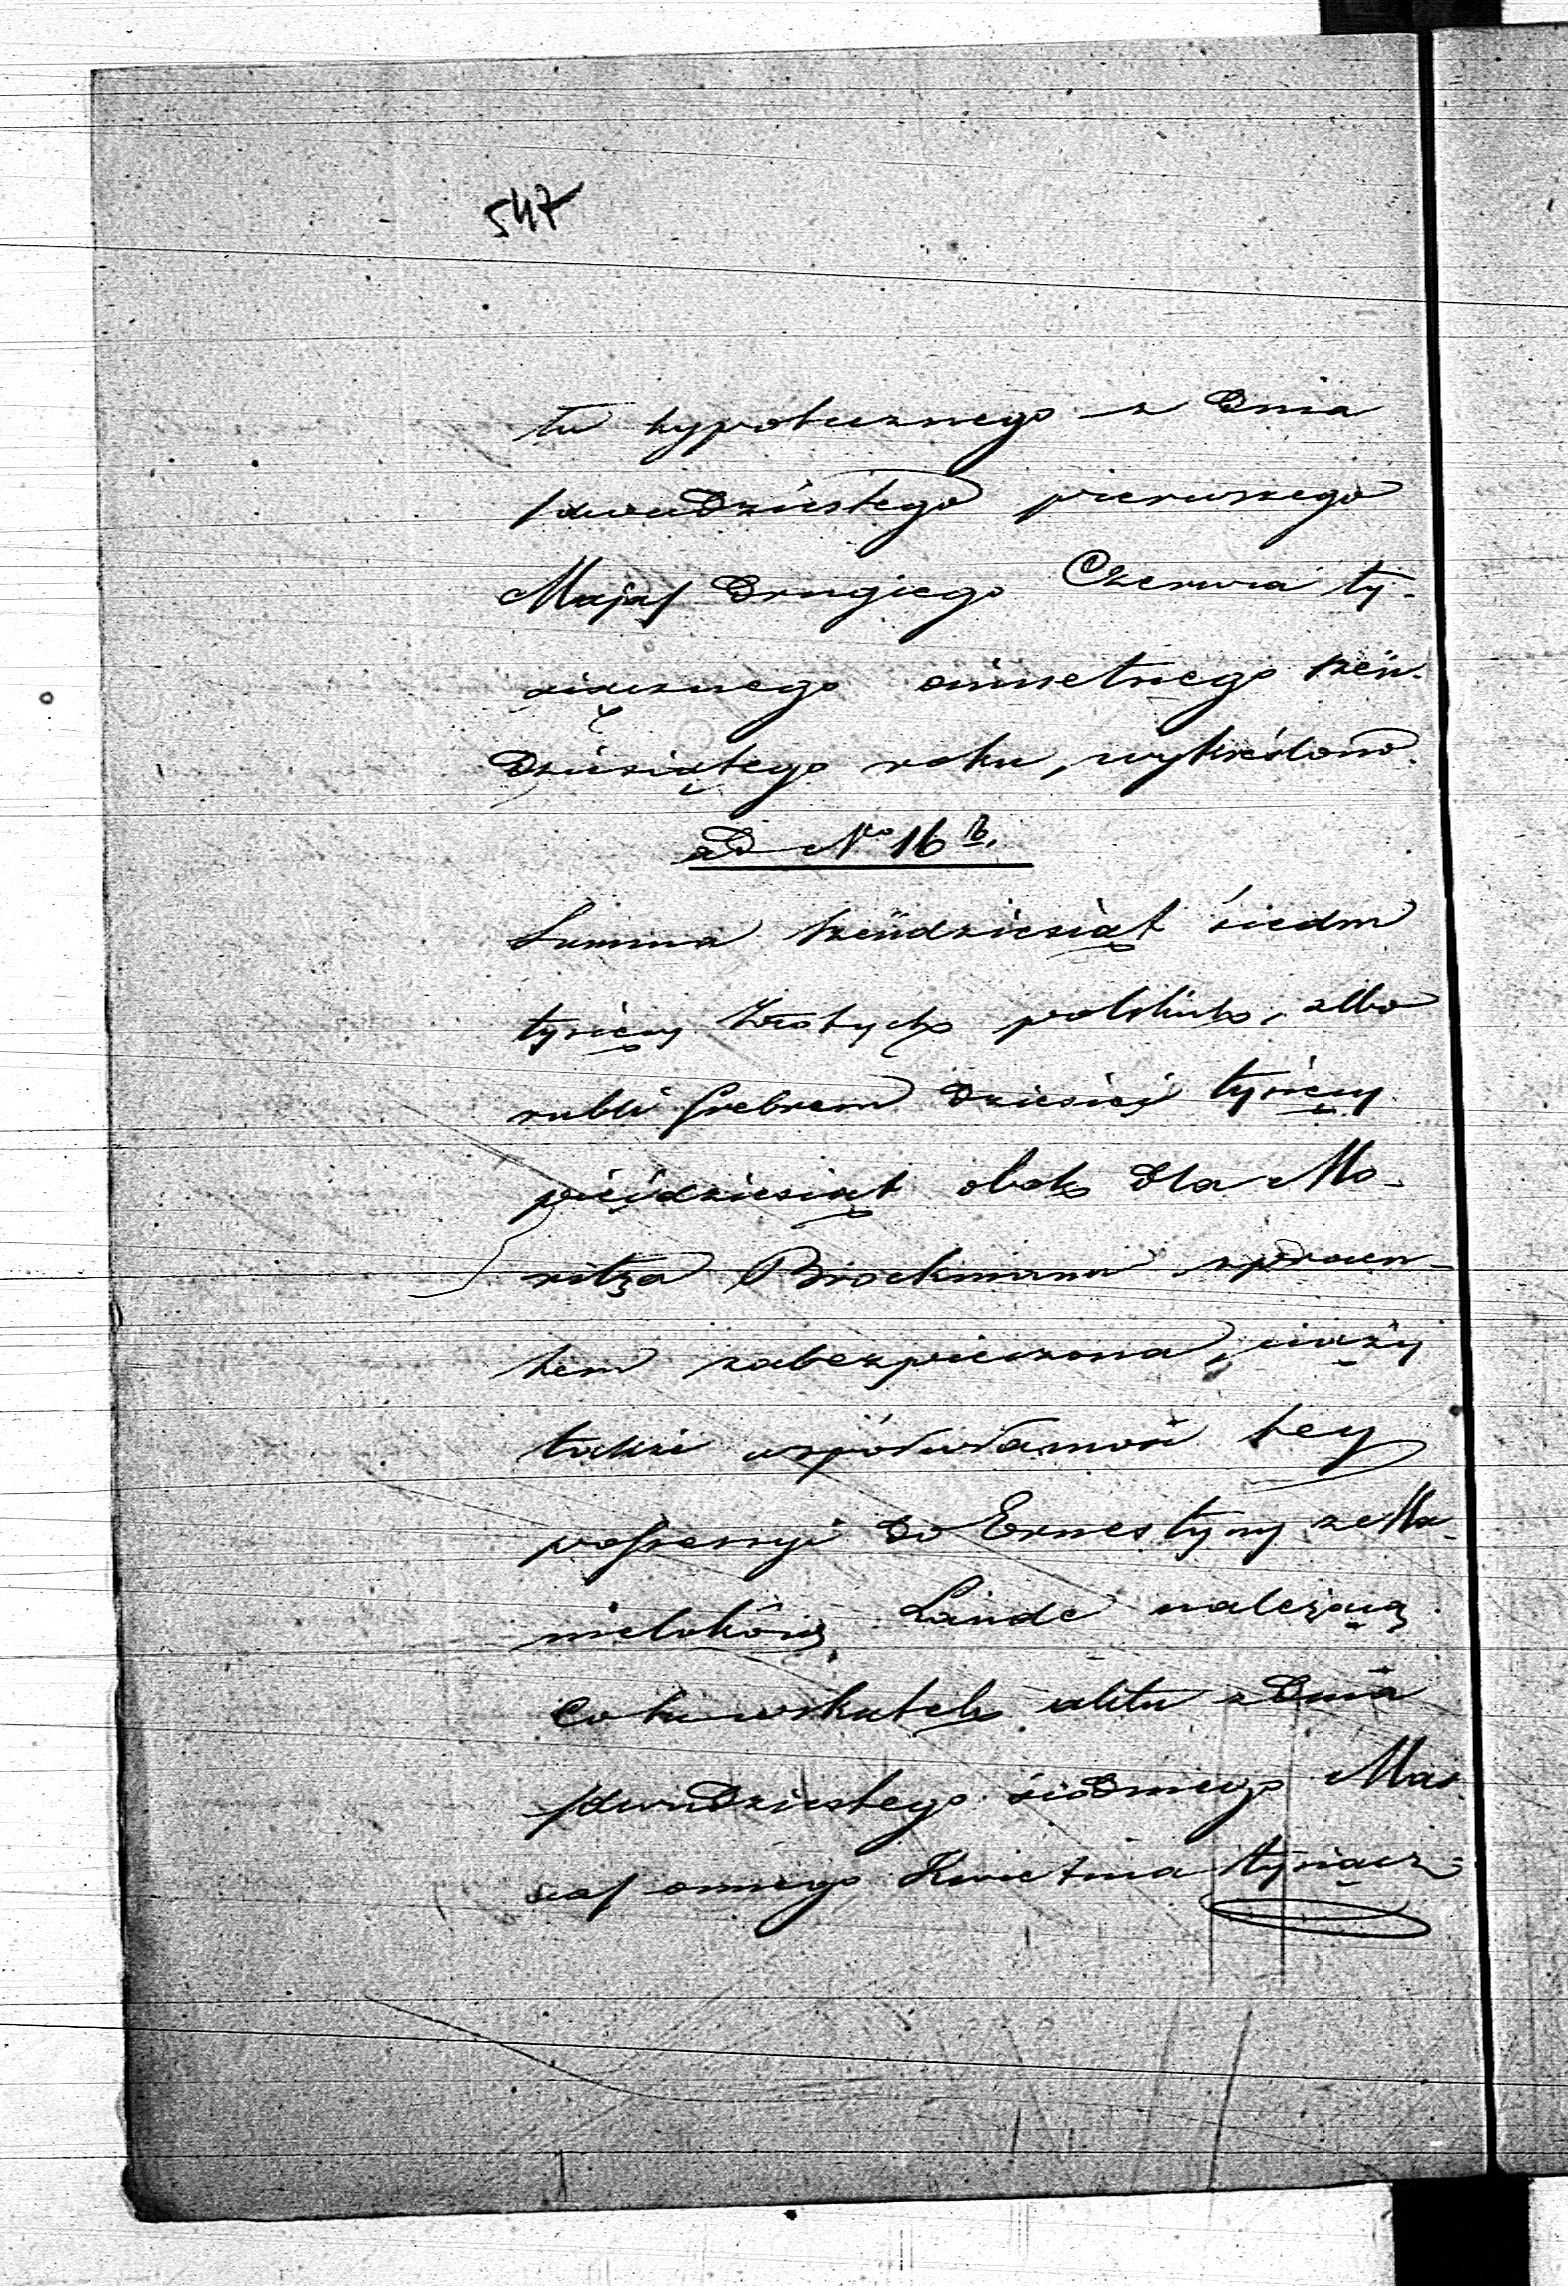 547
tu hypotecznego z dnia
/dwudziestego pierwszego
Maja/ drugiego Czerwca ty-
siącznego ośmsetnego sześć-
dziesiątego roku, wykreślono.
ad No 16 b.
Summa sześćdziesiąt siedm
tysięcy złotych polskich, albo
rubli srebrem dziesięć tysięcy
pięćdziesiąt obok dla Mo-
ritza Brockmana z procen-
tem zabezpieczona, ciąży
także współwłasność tey
possessyi do Ernestyny z Ma-
Lande należącą.
Co to wskutek aktu z dnia
/dwudziestego siódmego Mar-
ca/ ósmego Kwietnia tysiącz-